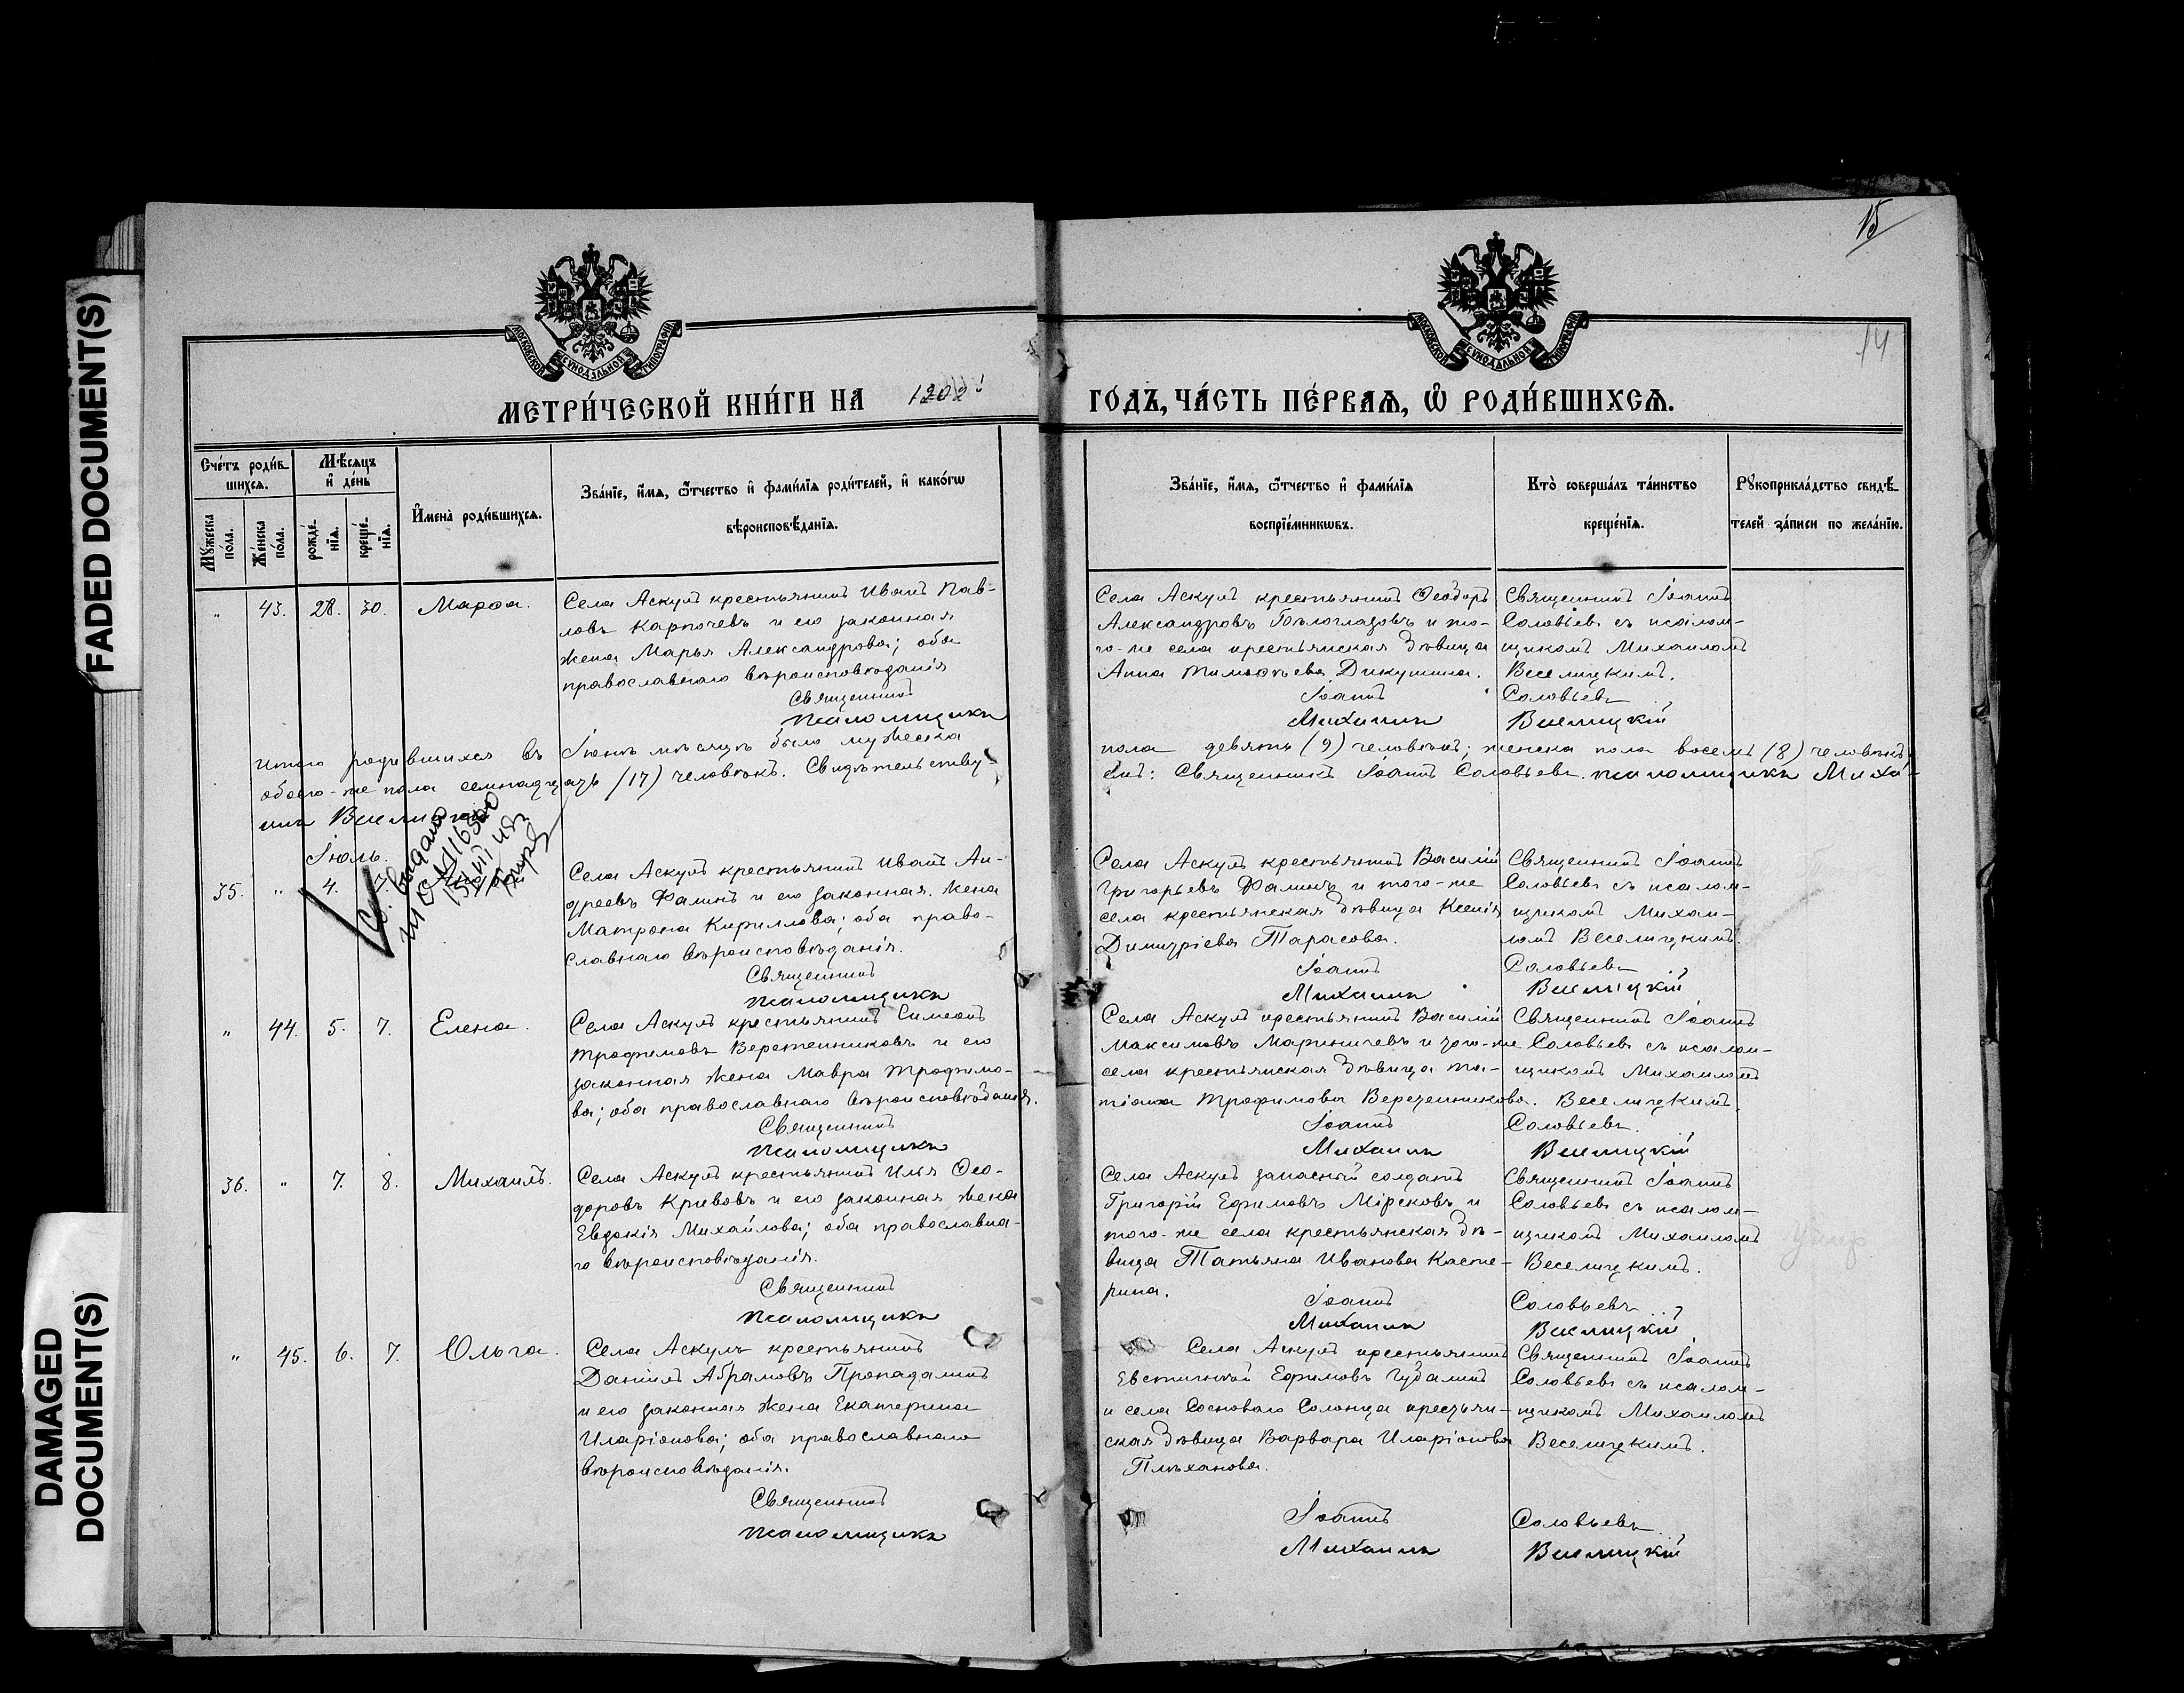 FADED DOCUMENT(S)
DAMAGED
DOCUMENT(S)
15
14
МОСКОВСКОЙ СѴНОДАЛЬНОЙ ТИПОГРАФІИ
МОСКОВСКОЙ СѴНОДАЛЬНОЙ ТИПОГРАФІИ
МЕТРИ́ЧЕСКОЙ КНИ́ГИ НА 1902
ГО́ДЪ, ЧА́СТЬ ПЕ́РВАѦ, Ѡ҆ РОДИ́ВШИХСѦ.
Сче́тъ роди́в-
шихсѧ.
Мѣ́сѧцъ
и҆ де́нь
Мꙋ́жеска
по́ла.
Же́нска
по́ла.
рожде́-
нїѧ.
креще́-
нїѧ.
И҆мена̀ роди́вшихсѧ.
Зва́нїе, и҆́мѧ, ѻ҆́тчество и҆ фами́лїѧ роди́телей, и҆ како́гѡ
вѣроисповѣ́данїѧ.
Зва́нїе, и҆́мѧ, ѻ҆́тчество и҆ фами́лїѧ
воспрїе́мникѡвъ.
Кто̀ соверша́лъ та́инство
креще́нїѧ.
Рꙋкоприкла́дство свидѣ́-
телей за́писи по жела́нїю.
" 43. 28. 30. Марѳа.
Села Аскулъ крестьянинъ Иванъ Пав-
ловъ Карпочевъ и его законная
жена Марья Александрова; оба
православнаго вѣроисповѣданія
Священникъ
Псаломщикъ
Села Аскулъ крестьянинъ Ѳеодоръ
Александровъ Бѣлоглазовъ и то-
го-же села крестьянская дѣвица
Анна Тимоѳѣева Дикушина.
Іоаннъ
Михаилъ
Священникъ Іоаннъ
Соловьевъ съ псалом-
щикомъ Михаиломъ
Веселицкимъ.
Соловьевъ
Веселицкій
Итого родившихся въ Іюнѣ мѣсяцѣ было мужеска пола девять (9) человѣкъ; женска пола восемь (8) человѣкъ
обоего-же пола семнадцать (17) человѣкъ. Свидѣтельству-
емъ: Священникъ Іоаннъ Соловьевъ. Псаломщикъ Миха-
илъ Веселицкій
Іюль.
35. " 4. 7.
выдано
Села Аскулъ крестьянинъ Иванъ Ан-
дреевъ Фалинъ и его законная жена
Матрона Кириллова; оба право-
славнаго вѣроисповѣданія.
Священникъ
Псаломщикъ
Села Аскулъ крестьянинъ Василій
Григорьевъ Фалинъ и того-же
села крестьянская дѣвица Ксенія
Димитріева Тарасова.
Іоаннъ
Михаилъ
Священникъ Іоаннъ
Соловьевъ съ псалом-
щикомъ Михаи-
ломъ Веселицкимъ.
Соловьевъ
Веселицкій
" 44. 5. 7. Елена.
Села Аскулъ крестьянинъ Симеонъ
Трофимовъ Веретенниковъ и его
законная жена Мавра Трофимо-
ва; оба православнаго вѣроисповѣданія.
Священникъ
Псаломщикъ
Села Аскулъ крестьянинъ Василій
Максимовъ Мариничевъ и того-же
села крестьянская дѣвица Та-
тіана Трофимова Веретенникова.
Іоаннъ
Михаилъ
Священникъ Іоаннъ
Соловьевъ съ псалом-
щикомъ Михаиломъ
Веселицкимъ.
Соловьевъ.
Веселицкій
36. " 7. 8. Михаилъ.
Села Аскулъ крестьянинъ Илья Ѳео-
доровъ Кривовъ и его законная жена
Евдокія Михайлова; оба православна-
го вѣроисповѣданія.
Священникъ
Псаломщикъ
Села Аскулъ запасный солдатъ
Григорій Ефимовъ Мірсковъ и
того-же села крестьянская дѣ-
вица Татьяна Иванова Касте-
рина.
Іоаннъ
Михаилъ
Священникъ Іоаннъ
Соловьевъ съ псалом-
щикомъ Михаиломъ
Веселицкимъ.
Соловьевъ
Веселицкій
умер
" 45. 6. 7. Ольга.
Села Аскулъ крестьянинъ
Даніилъ Абрамовъ Пропадалинъ
и его законная жена Екатерина
Иларіонова; оба православнаго
вѣроисповѣданія.
Священникъ
Псаломщикъ
Села Аскулъ крестьянинъ
Евстигній Ефимовъ Чудалинъ
и села Сосноваго Солонца крестьян-
ская дѣвица Варвара Иларіонова
Плѣханова.
Іоаннъ
Михаилъ
Священникъ Іоаннъ
Соловьевъ съ псалом-
щикомъ Михаиломъ
Веселицкимъ.
Соловьевъ
Веселицкій